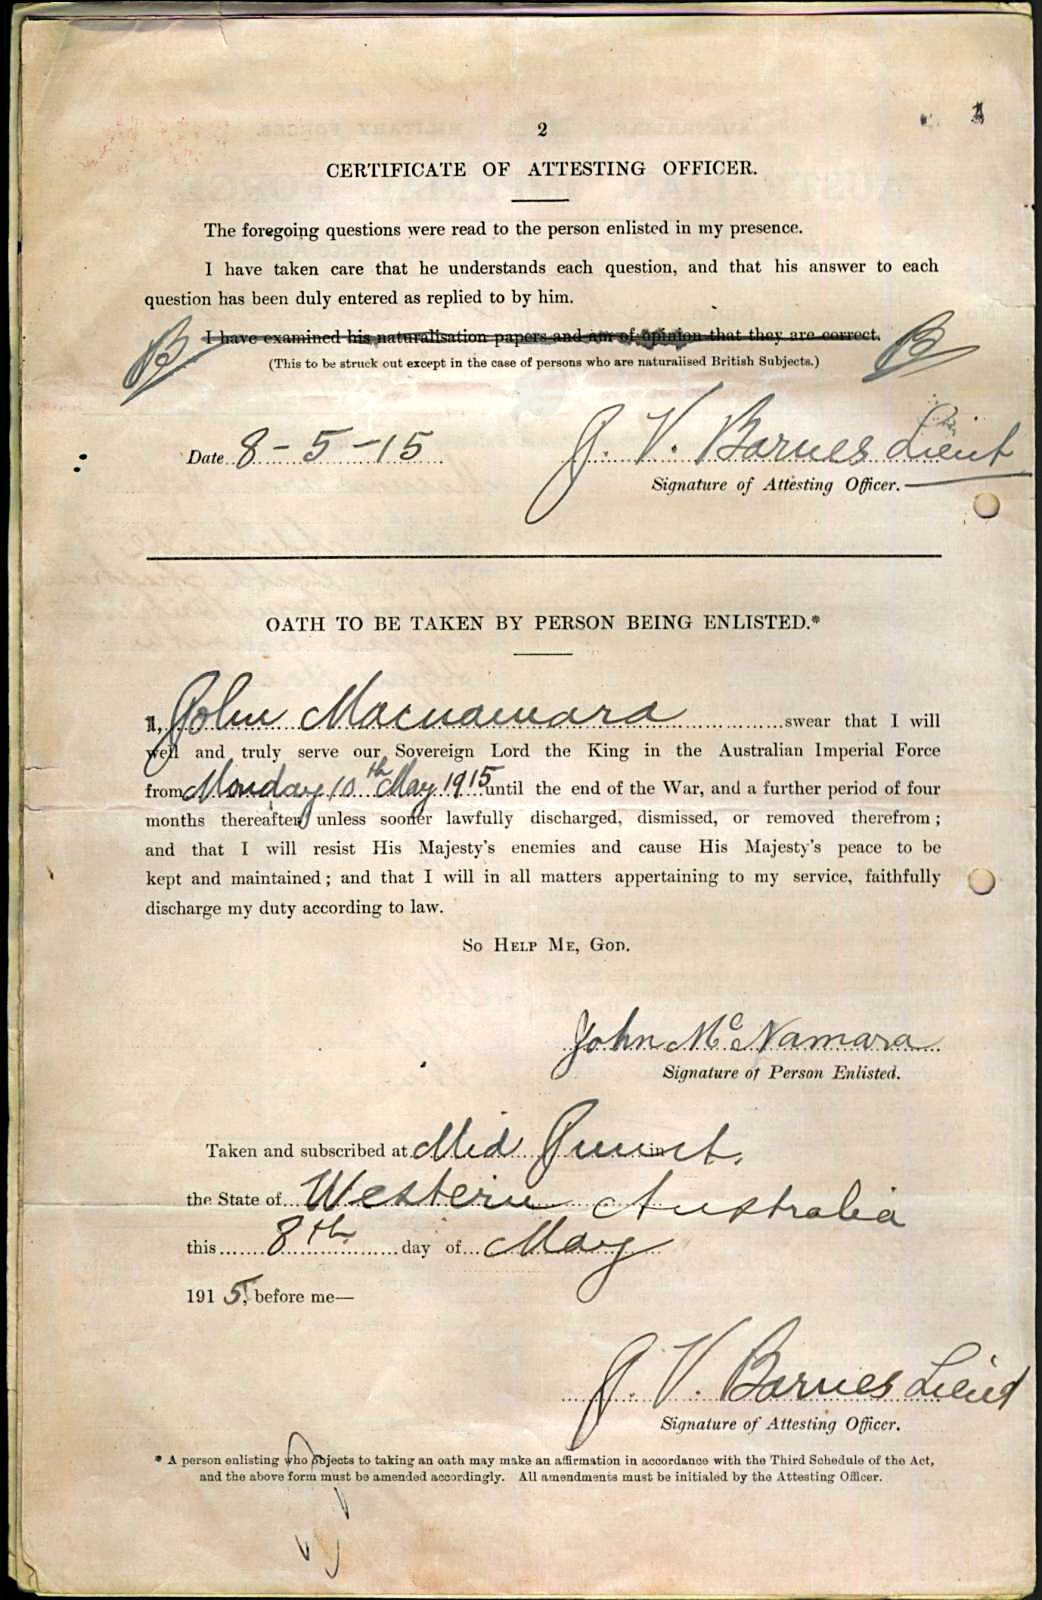 2
CERTIFICATE OF ATTESTING OFFICER.
The foregoing questions were read to the person enlisted in my presence.
I have taken care that he understands each question, and that his answer to each
question has been duly entered as replied to by him.
I have examined his naturalisation papers and am of opinion that they are correct.
B B
(This to be struck out except in the case of persons who are naturalised British Subjects.)
Date 8-5-15 J. V. Barnes Lieut
Signature of Attesting Officer.
OATH TO BE TAKEN BY PERSON BEING ENLISTED.*
I, John Macnamara swear that I will
well and truly serve our Sovereign Lord the King in the Australian Imperial Force
from Monday 10th May 1915 until the end of the War, and a further period of four
months thereafter unless sooner lawfully discharged, dismissed, or removed therefrom;
and that I will resist His Majesty's enemies and cause His Majesty's peace to be
kept and maintained; and that I will in all matters appertaining to my service, faithfully
discharge my duty according to law.
So Help Me, God.
John McNamara
Signature of Person Enlisted.
Taken and subscribed at Mid Junct. in
the State of Western Australia
this 8th day of May
1915, before me—
J. V. Barnes Lieut
Signature of Attesting Officer.
* A person enlisting who objects to taking an oath may make an affirmation in accordance with the Third Schedule of the Act,
and the above form must be amended accordingly. All amendments must be initialed by the Attesting Officer.